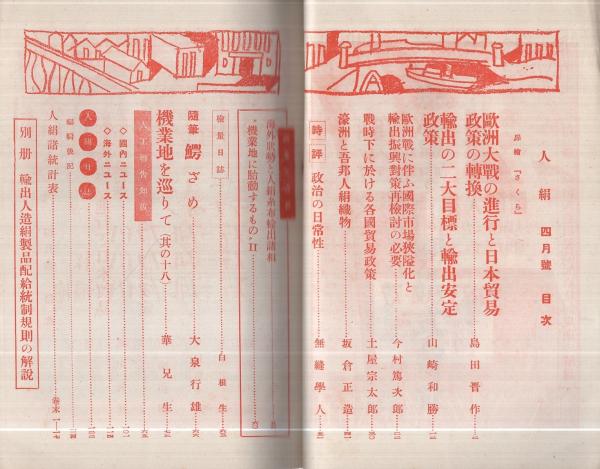 人絹 四月號 目次
扉繪「さくら」
歐洲大戰の進行と日本貿易
政策の轉換……島田晋作
輸出の二大目標と輸出安定
政策……山崎和勝
歐洲戰に伴ふ國際市場狹隘化と
輸出振興對策再檢討の必要……今村篤次郎
戰時下に於ける各國貿易政策……土屋宗太郎
濠洲と吾邦人絹織物……坂倉正造
時評 政治の日常性……無縫學人
海外狀勢と人絹糸布輸出諸相
"機業地に胎動するもの" II
檢量日誌……白根生
隨筆 鰐ざめ……大泉行雄
機業地を巡りて(其の十八)……華兄生
◇國內ニュース
◇海外ニュース
編輯後記
人絹諸統計表……卷末
別册 輸出人造絹製品配給統制規則の解說